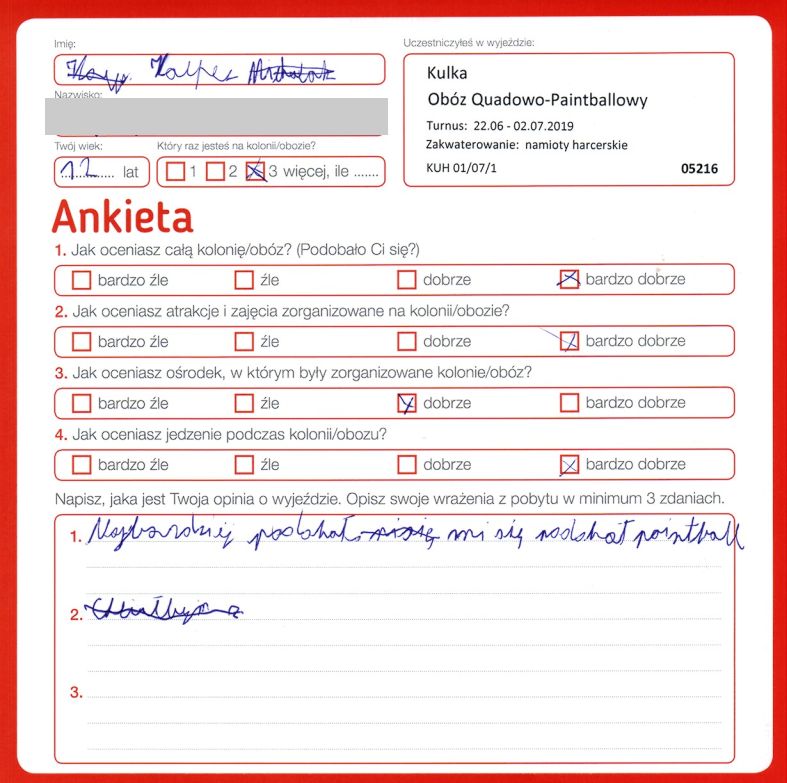 Imię:
Uczestniczyłeś w wyjeździe:
Kacper
Kulka
Obóz Quadowo-Paintballowy
Nazwisko:
Turnus: 22.06 - 02.07.2019
Zakwaterowanie: namioty harcerskie
KUH 01/07/1 05216
Twój wiek: Który raz jesteś na kolonii/obozie?
12 lat 1 2 3 więcej, ile .......
Ankieta
1. Jak oceniasz całą kolonię/obóz? (Podobało Ci się?)
bardzo źle źle dobrze bardzo dobrze
2. Jak oceniasz atrakcje i zajęcia zorganizowane na kolonii/obozie?
bardzo źle źle dobrze bardzo dobrze
3. Jak oceniasz ośrodek, w którym były zorganizowane kolonie/obóz?
bardzo źle źle dobrze bardzo dobrze
4. Jak oceniasz jedzenie podczas kolonii/obozu?
bardzo źle źle dobrze bardzo dobrze
Napisz, jaka jest Twoja opinia o wyjeździe. Opisz swoje wrażenia z pobytu w minimum 3 zdaniach.
1. Najbardziej mi się paintball
2.
3.